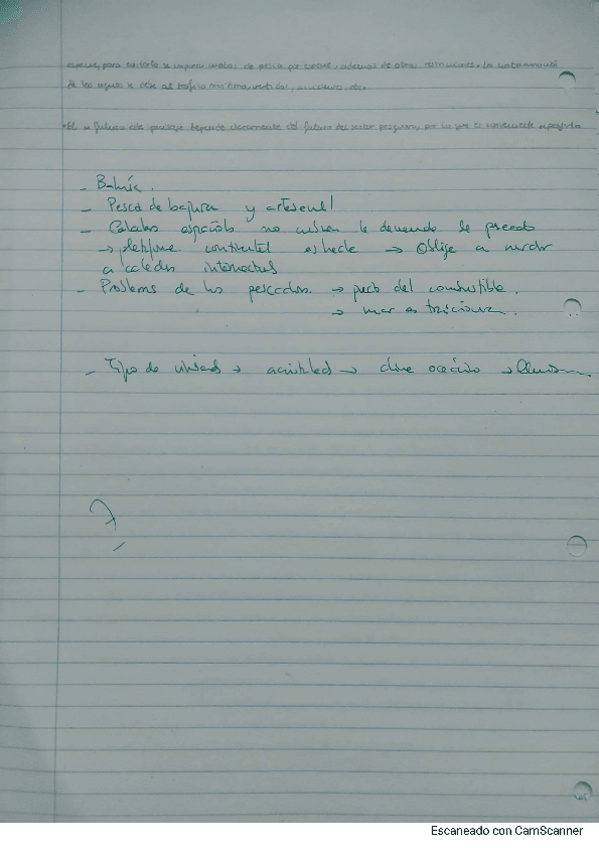 especie, para evitarlo se imponen vedas de pesca por especie, además de otras restricciones. La contaminación
de las aguas se debe al tráfico marítimo, vertidos, accidentes, etc.
• El futuro de paisaje depende claramente del futuro del sector pesquero, por lo que es conveniente apoyarlo
- Bahía.
- Pesca de bajura y artesanal
- Caladeros españoles no cubren la demanda de pescado
→ plataforma continental estrecha → Obliga a
a caladeros internacionales
- Problemas de los pescadores → precio del combustible.
→ mar
- Tipo de → → clima oceánico →